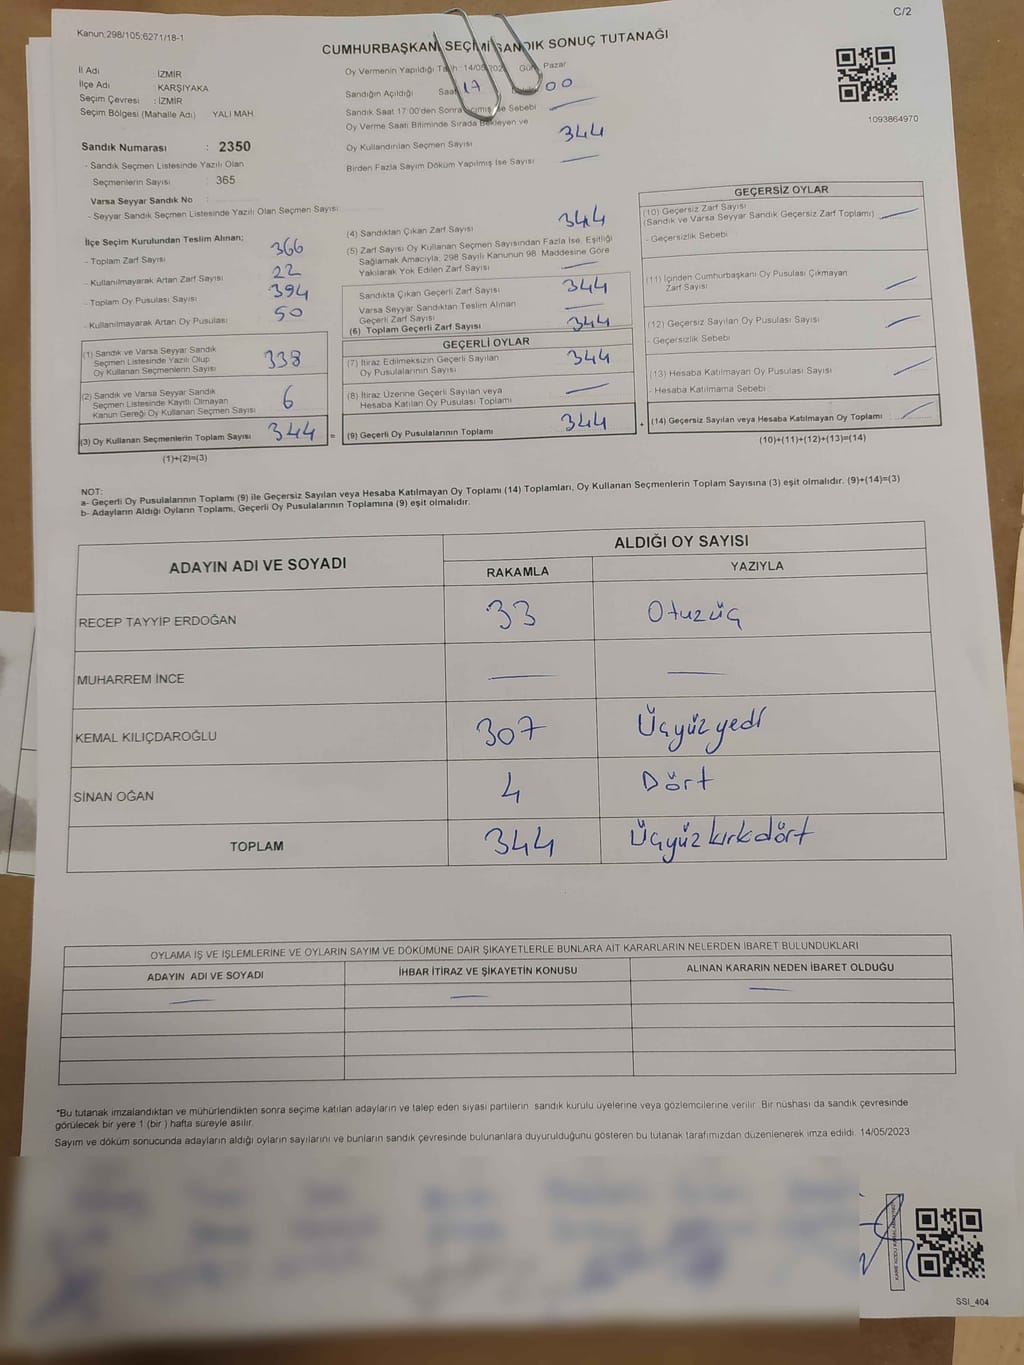 Kanun;298/105;6271/18-1
C/2
CUMHURBAŞKANI SEÇİMİ SANDIK SONUÇ TUTANAĞI
İl Adı : İZMİR
İlçe Adı : KARŞIYAKA
Seçim Çevresi : İZMİR
Seçim Bölgesi (Mahalle Adı) YALI MAH.
Sandık Numarası : 2350
- Sandık Seçmen Listesinde Yazılı Olan
Seçmenlerin Sayısı : 365
Varsa Seyyar Sandık No
- Seyyar Sandık Seçmen Listesinde Yazılı Olan Seçmen Sayısı
Oy Vermenin Yapıldığı Tarih :14/05/202 Gün: Pazar
Sandığın Açıldığı Saat 17 00
Sandık Saat 17.00'den Sonra Açılmış ise Sebebi —
Oy Verme Saati Bitiminde Sırada Bekleyen ve
Oy Kullandırılan Seçmen Sayısı 344
Birden Fazla Sayım Döküm Yapılmış İse Sayısı —
1093864970
İlçe Seçim Kurulundan Teslim Alınan;
- Toplam Zarf Sayısı 366
- Kullanılmayarak Artan Zarf Sayısı 22
- Toplam Oy Pusulası Sayısı 394
- Kullanılmayarak Artan Oy Pusulası 50
(1) Sandık ve Varsa Seyyar Sandık
Seçmen Listesinde Yazılı Olup
Oy Kullanan Seçmenlerin Sayısı 338
(2) Sandık ve Varsa Seyyar Sandık
Seçmen Listesinde Kayıtlı Olmayan
Kanun Gereği Oy Kullanan Seçmen Sayısı 6
(3) Oy Kullanan Seçmenlerin Toplam Sayısı 344 =
(1)+(2)=(3)
(4) Sandıktan Çıkan Zarf Sayısı 344
(5) Zarf Sayısı Oy Kullanan Seçmen Sayısından Fazla İse, Eşitliği
Sağlamak Amacıyla; 298 Sayılı Kanunun 98. Maddesine Göre
Yakılarak Yok Edilen Zarf Sayısı —
Sandıkta Çıkan Geçerli Zarf Sayısı 344
Varsa Seyyar Sandıktan Teslim Alınan
Geçerli Zarf Sayısı —
(6) Toplam Geçerli Zarf Sayısı 344
GEÇERLİ OYLAR
(7) İtiraz Edilmeksizin Geçerli Sayılan
Oy Pusulalarının Sayısı 344
(8) İtiraz Üzerine Geçerli Sayılan veya
Hesaba Katılan Oy Pusulası Toplamı —
(9) Geçerli Oy Pusulalarının Toplamı 344 +
GEÇERSİZ OYLAR
(10) Geçersiz Zarf Sayısı
(Sandık ve Varsa Seyyar Sandık Geçersiz Zarf Toplamı) —
- Geçersizlik Sebebi
(11) İçinden Cumhurbaşkanı Oy Pusulası Çıkmayan
Zarf Sayısı —
(12) Geçersiz Sayılan Oy Pusulası Sayısı —
- Geçersizlik Sebebi
(13) Hesaba Katılmayan Oy Pusulası Sayısı —
- Hesaba Katılmama Sebebi
(14) Geçersiz Sayılan veya Hesaba Katılmayan Oy Toplamı —
(10)+(11)+(12)+(13)=(14)
NOT:
a- Geçerli Oy Pusulalarının Toplamı (9) ile Geçersiz Sayılan veya Hesaba Katılmayan Oy Toplamı (14) Toplamları, Oy Kullanan Seçmenlerin Toplam Sayısına (3) eşit olmalıdır. (9)+(14)=(3)
b- Adayların Aldığı Oyların Toplamı, Geçerli Oy Pusulalarının Toplamına (9) eşit olmalıdır.
ADAYIN ADI VE SOYADI
ALDIĞI OY SAYISI
RAKAMLA YAZIYLA
RECEP TAYYİP ERDOĞAN 33 Otuzüç
MUHARREM İNCE — —
KEMAL KILIÇDAROĞLU 307 Üçyüzyedi
SİNAN OĞAN 4 Dört
TOPLAM 344 Üçyüzkırkdört
OYLAMA İŞ VE İŞLEMLERİNE VE OYLARIN SAYIM VE DÖKÜMÜNE DAİR ŞİKAYETLERLE BUNLARA AİT KARARLARIN NELERDEN İBARET BULUNDUKLARI
ADAYIN ADI VE SOYADI İHBAR İTİRAZ VE ŞİKAYETİN KONUSU ALINAN KARARIN NEDEN İBARET OLDUĞU
— — —
*Bu tutanak imzalandıktan ve mühürlendikten sonra seçime katılan adayların ve talep eden siyasi partilerin sandık kurulu üyelerine veya gözlemcilerine verilir. Bir nüshası da sandık çevresinde
görülecek bir yere 1 (bir ) hafta süreyle asılır.
Sayım ve döküm sonucunda adayların aldığı oyların sayılarını ve bunların sandık çevresinde bulunanlara duyurulduğunu gösteren bu tutanak tarafımızdan düzenlenerek imza edildi. 14/05/2023
SSİ_404